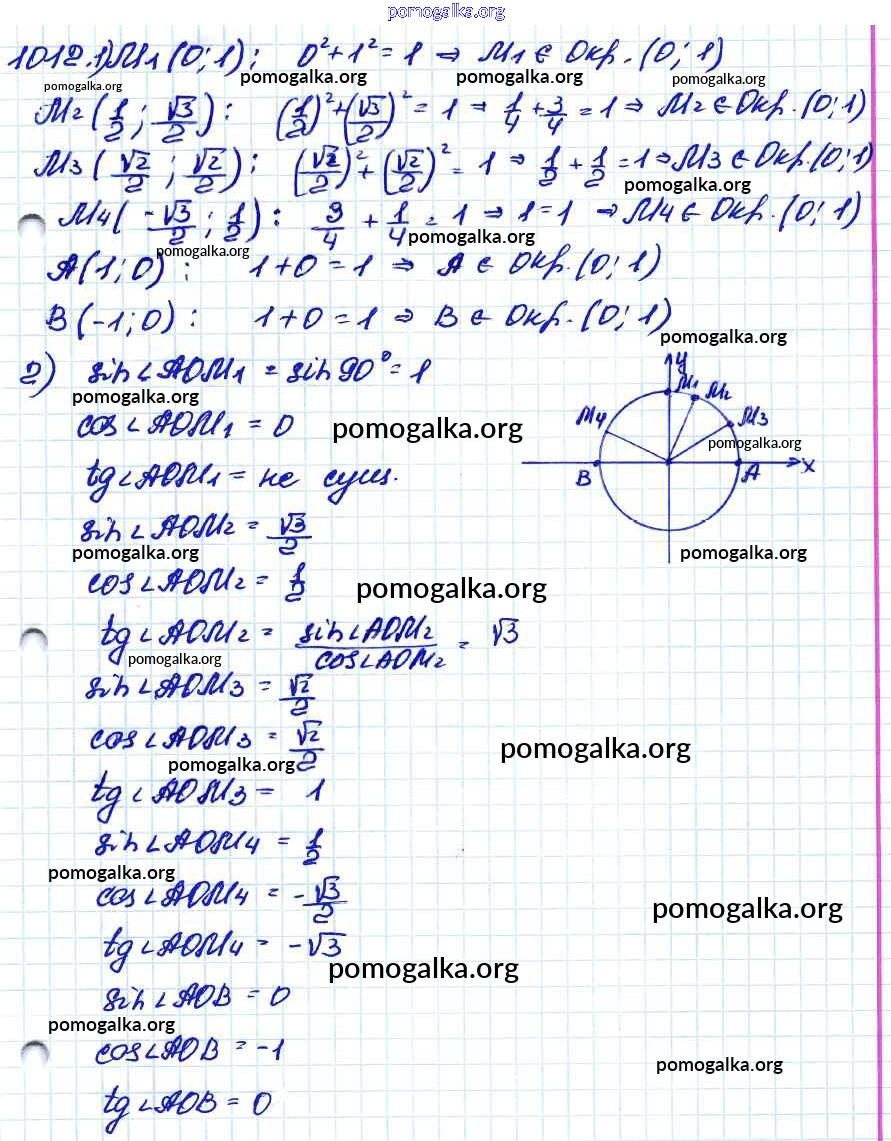 pomogalka.org
1012.1) M1 (0; 1): 0² + 1² = 1 ⇒ M1 ∈ Окр. (0; 1)
pomogalka.org pomogalka.org pomogalka.org pomogalka.org
M2 (1/2; √3/2): (1/2)² + (√3/2)² = 1 ⇒ 1/4 + 3/4 = 1 ⇒ M2 ∈ Окр. (0; 1)
M3 (√2/2; √2/2): (√2/2)² + (√2/2)² = 1 ⇒ 1/2 + 1/2 = 1 ⇒ M3 ∈ Окр. (0; 1)
pomogalka.org
M4 (-√3/2; 1/2): 3/4 + 1/4 = 1 ⇒ 1 = 1 ⇒ M4 ∈ Окр. (0; 1)
pomogalka.org pomogalka.org
A (1; 0): 1 + 0 = 1 ⇒ A ∈ Окр. (0; 1)
B (-1; 0): 1 + 0 = 1 ⇒ B ∈ Окр. (0; 1)
pomogalka.org
2) sin ∠AOM1 = sin 90° = 1
pomogalka.org
cos ∠AOM1 = 0
pomogalka.org
tg ∠AOM1 = не сущ.
sin ∠AOM2 = √3/2
pomogalka.org
cos ∠AOM2 = 1/2
pomogalka.org
tg ∠AOM2 = sin ∠AOM2 / cos ∠AOM2 = √3
pomogalka.org
sin ∠AOM3 = √2/2
cos ∠AOM3 = √2/2
pomogalka.org
tg ∠AOM3 = 1
sin ∠AOM4 = 1/2
pomogalka.org
cos ∠AOM4 = -√3/2
tg ∠AOM4 = -√3
pomogalka.org
sin ∠AOB = 0
pomogalka.org
cos ∠AOB = -1
tg ∠AOB = 0
y
M1 M2
M4 M3
pomogalka.org
B A x
pomogalka.org
pomogalka.org
pomogalka.org
pomogalka.org